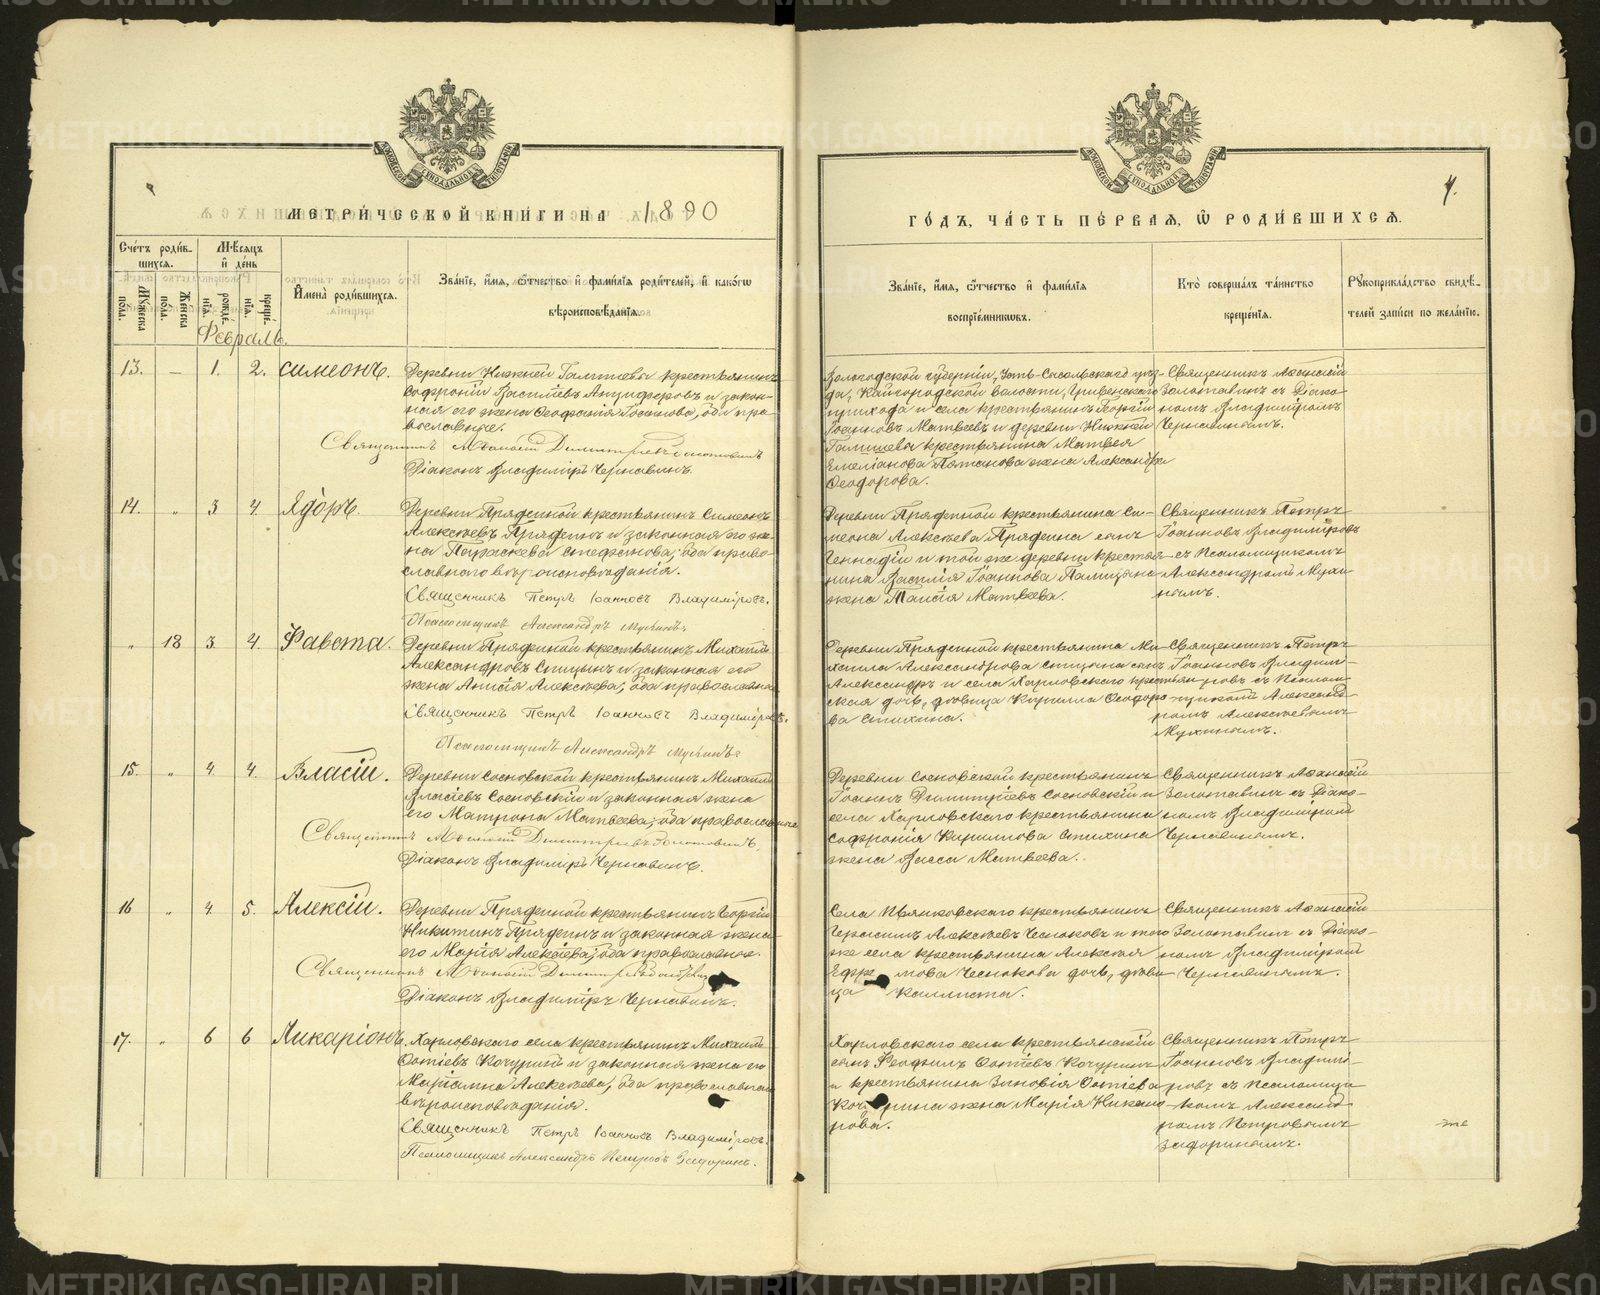 МЕТРИ́ЧЕСКОЙ КНИ́ГИ НА 1890
Сче́тъ роди́в-
шихся.
Мѣсяцъ
и҆ де́нь
Му́жеска
по́ла.
Же́нска
по́ла.
рожде́-
нїѧ.
креще́-
нїѧ.
И҆мена̀ роди́вшихся.
Зва́нїе, и҆́мя, ѻ҆́тчество и҆ фами́лїя роди́телей, и҆ како́гѡ
вѣроисповѣ́данїѧ.
Февраль.
13. — 1. 2. Симеонъ.
Деревни Нижней Галишева крестьянинъ
Софроній Василіевъ Анциферовъ и закон-
ная его жена Феофанія Іоаннова, оба пра-
вославные.
Священникъ Аѳанасій Димитріевъ Золотавинъ
Діаконъ Владиміръ Чернавинъ.
14. „ 3 4 Ядоръ.
Деревни Пряденной крестьянинъ Симеонъ
Алексѣевъ Прядеинъ и законная его же-
на Параскева Стефанова, оба право-
славнаго вѣроисповѣданія.
Священникъ Петръ Іоанновъ Владиміровъ.
Псаломщикъ Александръ Мухинъ.
„ 18 3. 4. Фавста.
Деревни Пряденной крестьянинъ Михаилъ
Александровъ Спицынъ и законная его
жена Анисія Алексѣева, оба православна
Священникъ Петръ Іоанновъ Владиміровъ.
Псаломщикъ Александръ Мухинъ.
15. „ 4. 4. Власій.
Деревни Сосновской крестьянинъ Михаилъ
Власіевъ Сосновскій и законная жена
его Матрона Матвеева, оба православные
Священникъ Аѳанасій Димитріевъ Золотавинъ,
Діаконъ Владиміръ Чернавинъ.
16 „ 4. 5. Алексій.
Деревни Пряденной крестьянинъ Георгій
Никитинъ Прядеинъ и законная жена
его Марія Алексіева, оба православные.
Священникъ Аѳанасій Димитріевъ Золотавинъ
Діаконъ Владиміръ Чернавинъ.
17. „ 6 6 Макаріонъ.
Харловскаго села крестьянинъ Михаилъ
Фотіевъ Кочуринъ и законная жена его
Маріамна Алексѣева, оба православнаго
вѣроисповѣданія.
Священникъ Петръ Іоанновъ Владиміровъ.
Псаломщикъ Александръ Петровъ Задоринъ.
4.
ГО́ДЪ, ЧА́СТЬ ПЕ́РВАЯ, Ѡ҆ РОДИ́ВШИХСЯ.
Зва́нїе, и҆́мя, ѻ҆́тчество и҆ фами́лїя
воспрїе́мниковъ.
Кто̀ соверша́лъ та́инство
креще́нїѧ.
Рꙋкоприкла́дство свидѣ́-
телей за́писи по жела́нїю.
Вологодской губерніи, Усть-Сысольскаго уѣз-
да, Кайгородской волости, Гривенскаго
прихода и села крестьянинъ Георгій
Іоанновъ Матвеевъ и деревни Нижней
Галишева крестьянина Матвея
Емеліанова Патанова жена Александра
Феодорова.
Священникъ Аѳанасій
Золотавинъ съ Діако-
номъ Владиміромъ
Чернавинымъ.
Деревни Пряденной крестьянина Си-
меона Алексѣева Прядеина сынъ
Геннадій и той же деревни крестья-
нина Василія Іоаннова
жена Таисія Матвеева.
Священникъ Петръ
Іоанновъ Владиміровъ
съ Псаломщикомъ
Александромъ Мухи-
нымъ.
Деревни Пряденной крестьянина Ми-
хаила Александрова Спицына сынъ
Александръ и села Харловскаго крестьян-
ская дочь, дѣвица Кирилла Феодоро-
ва Стихина.
Священникъ Петръ
Іоанновъ Владими-
ровъ съ Псалом-
щикомъ Александ-
ромъ Алексѣевымъ
Мухинымъ.
Деревни Сосновской крестьянинъ
Іоаннъ Димитріевъ Сосновскій и
села Харловскаго крестьянина
Софронія Кирилова Стихина
жена Васса Матвеева.
Священникъ Аѳанасій
Золотавинъ съ Діако-
номъ Владиміромъ
Чернавинымъ.
Села Пьянковскаго крестьянинъ
Герасимъ Алексѣевъ Чесноковъ и того
же села крестьянина Алексея
Ефре мова Чеснокова дочь, дѣви-
ца Каллиста.
Священникъ Аѳанасій
Золотавинъ съ Діако-
номъ Владиміромъ
Чернавинымъ.
Харловскаго села крестьянскій
сынъ Феофилъ Фотіевъ Кочуринъ
и крестьянина Зиновія Фотіева
Кочурина жена Марія Никано-
рова.
Священникъ Петръ
Іоанновъ Владимі-
ровъ съ Псаломщи-
комъ Александ-
ромъ Петровымъ
Задоринымъ.
METRIKI.GASO-URAL.RU